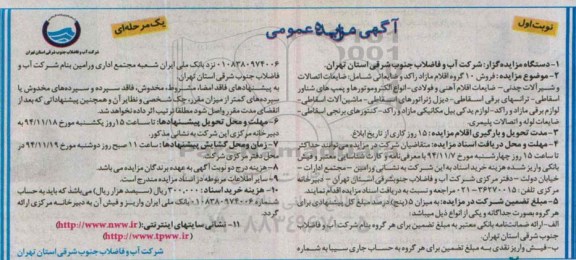 نوبت اول
آگهی مزایده عمومی
یک مرحله‌ای
شرکت آب و فاضلاب جنوب شرقی استان تهران
۱- دستگاه مزایده‌گزار: شرکت آب و فاضلاب جنوب شرقی استان تهران.
۲- موضوع مزایده: فروش ۱۰ گروه اقلام مازاد راکد و ضایعاتی شامل: ضایعات اتصالات
و شیرآلات چدنی- ضایعات اقلام آهنی و فولادی- انواع الکتروموتورها و پمپ های شناور
اسقاطی- ترانسهای برقی اسقاطی- دیزل ژنراتورهای اسقاطی- ماشین آلات اسقاطی-
لوازم برقی مازاد و راکد- لوازم یدکی بیل مکانیکی مازاد و راکد- کنتورهای برنجی اسقاطی-
ضایعات لوله و اتصالات پلیمری.
۳- مدت تحویل و بارگیری اقلام مزایده: ۱۵ روز کاری از تاریخ ابلاغ.
۴- مهلت و محل دریافت اسناد مزایده: متقاضیان شرکت در مزایده می‌توانند حداکثر
تا ساعت ۱۵ روز چهارشنبه مورخ ۹۴/۱۱/۷ با معرفی‌نامه و کارت شناسایی معتبر و فیش
بانکی واریز شده هزینه خرید اسناد به این شرکت به نشانی ورامین – مجتمع ادارات –
خیابان دولت – دفتر مرکزی شرکت آب و فاضلاب جنوبشرقی استان تهران – دبیرخانه
مرکزی تلفن: ۳۶۲۷۰۰۱۵-۰۲۱ مراجعه و نسبت به دریافت اسناد مزایده اقدام نمایند.
۵- مبلغ تضمین شرکت در مزایده: به میزان ۵ (پنج) درصد مبلغ کل پیشنهادی برای
هر گروه بصورت جداگانه و یکی از انواع ذیل میباشد:
الف- ارائه ضمانت‌نامه بانکی معتبر به مبلغ تضمین برای هر گروه بنام شرکت آب و فاضلاب
جنوب شرقی استان تهران.
ب- فیش واریز نقدی به مبلغ تضمین برای هر گروه به حساب جاری سیبا به شماره
۰۱۰۸۳۸۰۹۷۴۰۰۶ نزد بانک ملی ایران شعبه مجتمع اداری ورامین بنام شرکت آب و
فاضلاب جنوب شرقی استان تهران.
به پیشنهادهای فاقد امضا، مشروط، مخدوش، فاقد سپرده و سپرده‌های مخدوش یا
سپرده‌های کمتر از میزان مقرر، چک شخصی و نظایر آن و همچنین پیشنهاداتی که بعد از
انقضای مدت مقرر واصل شود مطلقا ترتیب اثر داده نخواهد شد.
۶- مهلت و محل تحویل پیشنهادها: تا ساعت ۱۵ روز یکشنبه مورخ ۹۴/۱۱/۱۸ به
دبیرخانه مرکزی این شرکت به نشانی مذکور.
۷- زمان و محل گشایش پیشنهادها: ساعت ۱۱ صبح روز دوشنبه مورخ ۹۴/۱۱/۱۹ در
محل دفتر مرکزی شرکت.
۸- هزینه درج دو نوبت آگهی به عهده برندگان مزایده می باشد.
۹- سایر اطلاعات مربوطه در اسناد مزایده مندرج است.
۱۰- هزینه خرید اسناد: ۳۰۰،۰۰۰ ریال (سیصد هزار ریال) می‌باشد که باید به حساب
شماره ۰۱۰۸۳۸۰۹۷۴۰۰۶ بانک ملی ایران واریز و فیش آن به دبیرخانه مرکزی ارائه
گردد.
۱۱- نشانی سایتهای اینترنتی: (http://www.nww.ir)
(http://www.tpww.ir)
شرکت آب و فاضلاب جنوب شرقی استان تهران